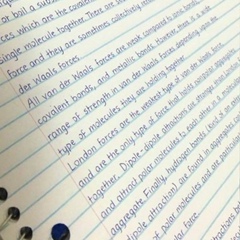 or boil a subs
ces which are the covalen
single molecule together. There are
force and they are sometimes collectively refer
der Waals forces.
All van der Waals forces are weak compared to ionic bonds,
covalent bonds, and metallic bonds. However, there is a wide
range of strength in van der Waals forces depending upon the
type of molecules they are holding together.
London forces are the weakest type of van der Waals force
and are the only type of force that holds nonpolar aggregates
together. Dipole-dipole attractions are stronger than London
and attract polar molecules to each other in a molecular
aggregate. Finally, hydrogen bonds (kind of an
dipole attraction) are found in aggregate
of polar molecules and are particular
lar force.